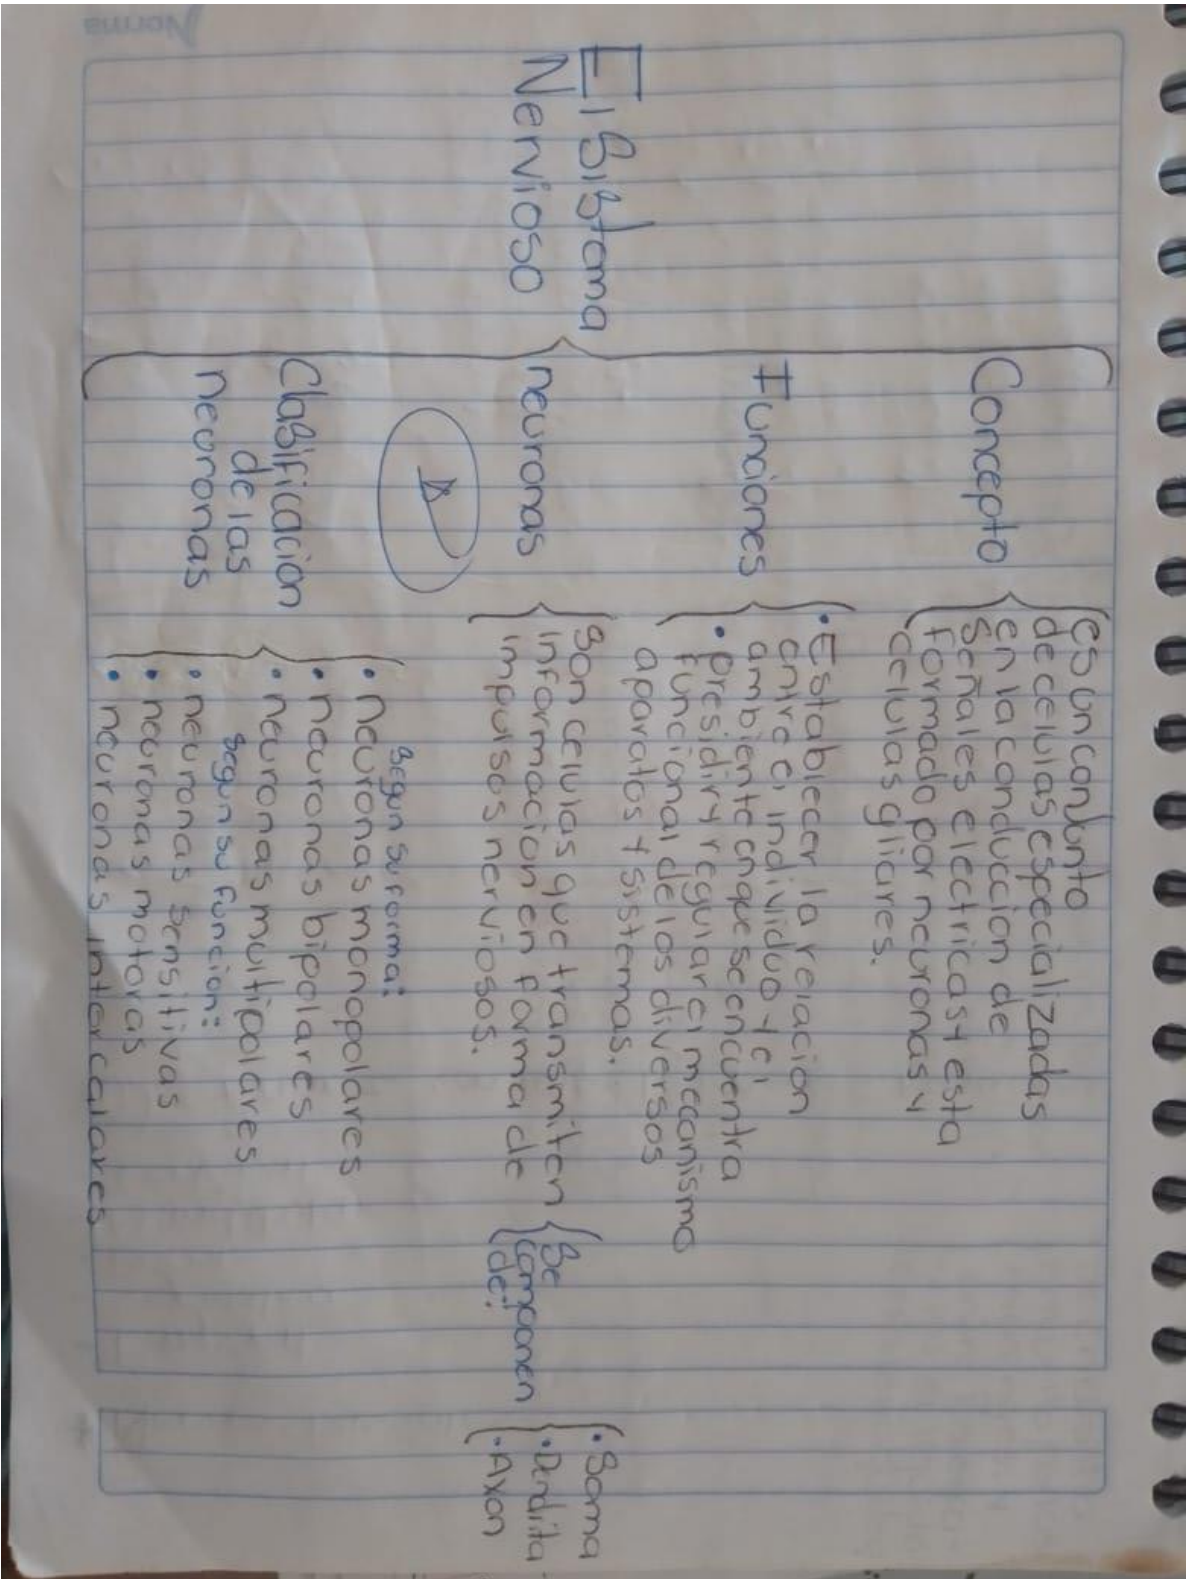 Norma
El Sistema
Nervioso
Concepto
es un conjunto
de celulas especializadas
en la conduccion de
Señales electricas y esta
formado por neuronas y
celulas gliares.
Funciones
• Establecer la relacion
entre el individuo y el
ambiente en que se encuentra
• presidir y regular el mecanismo
funcional de los diversos
aparatos y sistemas.
neuronas
Son celulas que transmiten
informacion en forma de
impulsos nerviosos.
Se
componen
de:
• Soma
• Dendrita
• Axon
Clasificacion
de las
neuronas
Segun su forma:
• neuronas monopolares
• neuronas bipolares
• neuronas multipolares
Segun su funcion:
• neuronas sensitivas
• neuronas motoras
• neuronas intercalares